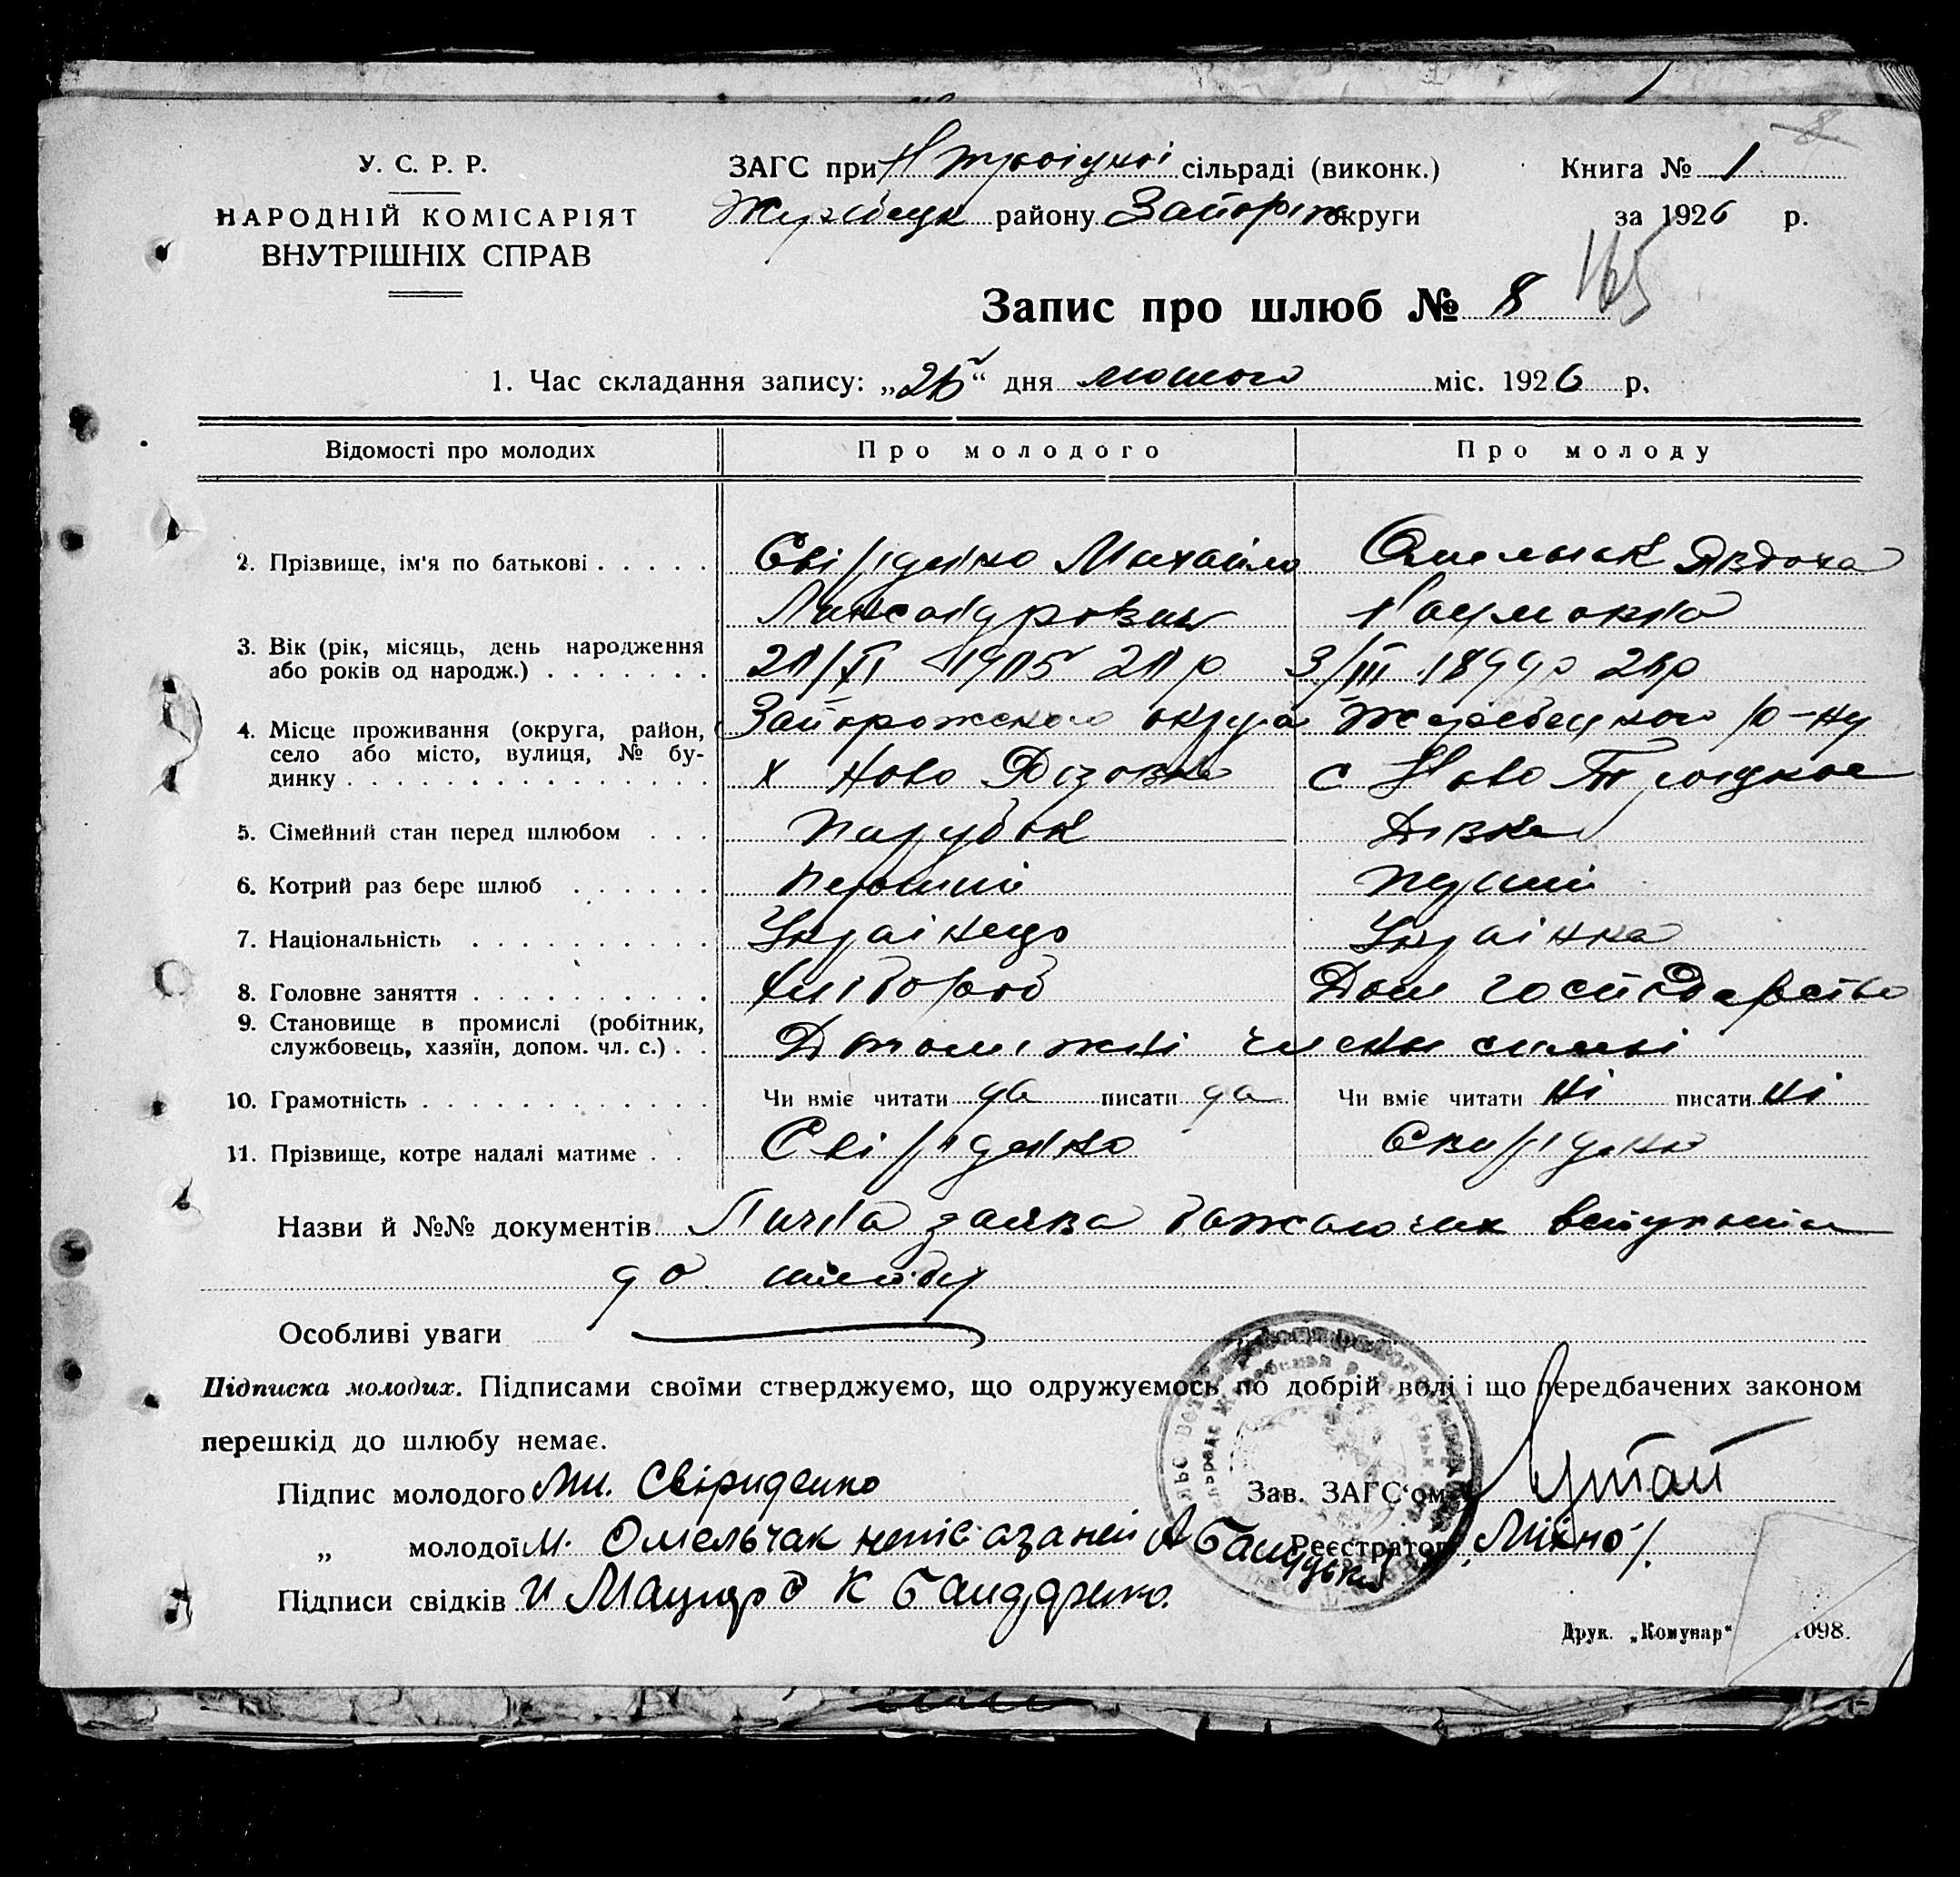 У. С. Р. Р.
НАРОДНІЙ КОМІСАРІЯТ
ВНУТРІШНІХ СПРАВ
ЗАГС при Н Троіцкі сільраді (виконк.)
Жеребецк району Запоріж округи
Книга № 1
за 1926 р.
165
Запис про шлюб № 8
1. Час складання запису: „26“ дня лютого міс. 1926 р.
Відомості про молодих Про молодого Про молоду
2. Прізвище, ім'я по батькові Свіріденко Михайло Омельчак Явдоха
Лександрович Наумовна
3. Вік (рік, місяць, день народження
або років од народж.) 20/XI 1905 20 р 3/III 1899р 26р
4. Місце проживання (округа, район,
село або місто, вулиця, № бу-
динку Запорожского округа Жеребецкого р-ну
х Ново с Ново Троіцкое
5. Сімейний стан перед шлюбом Парубок Дівка
6. Котрий раз бере шлюб Перший Перший
7. Національність Украінець Украінка
8. Головне заняття Хлібороб Дом господарство
9. Становище в промислі (робітник,
службовець, хазяїн, допом. чл. с.) Допоміжні члени сімьі
10. Грамотність Чи вміє читати да писати да Чи вміє читати ні писати ні
11. Прізвище, котре надалі матиме Свіріденко Свиріденко
Назви й №№ документів Лична заява бажаючих вступити
до шлюбу
Особливі уваги
Підписка молодих. Підписами своїми стверджуємо, що одружуємось по добрій волі і що передбачених законом
перешкід до шлюбу немає.
Підпис молодого Ми. Свіриденко Зав. ЗАГС'ом
„ молодої Омельчак Реєстратор Міхно
Підписи свідків И К
Друк. „Комунар“ 1098.